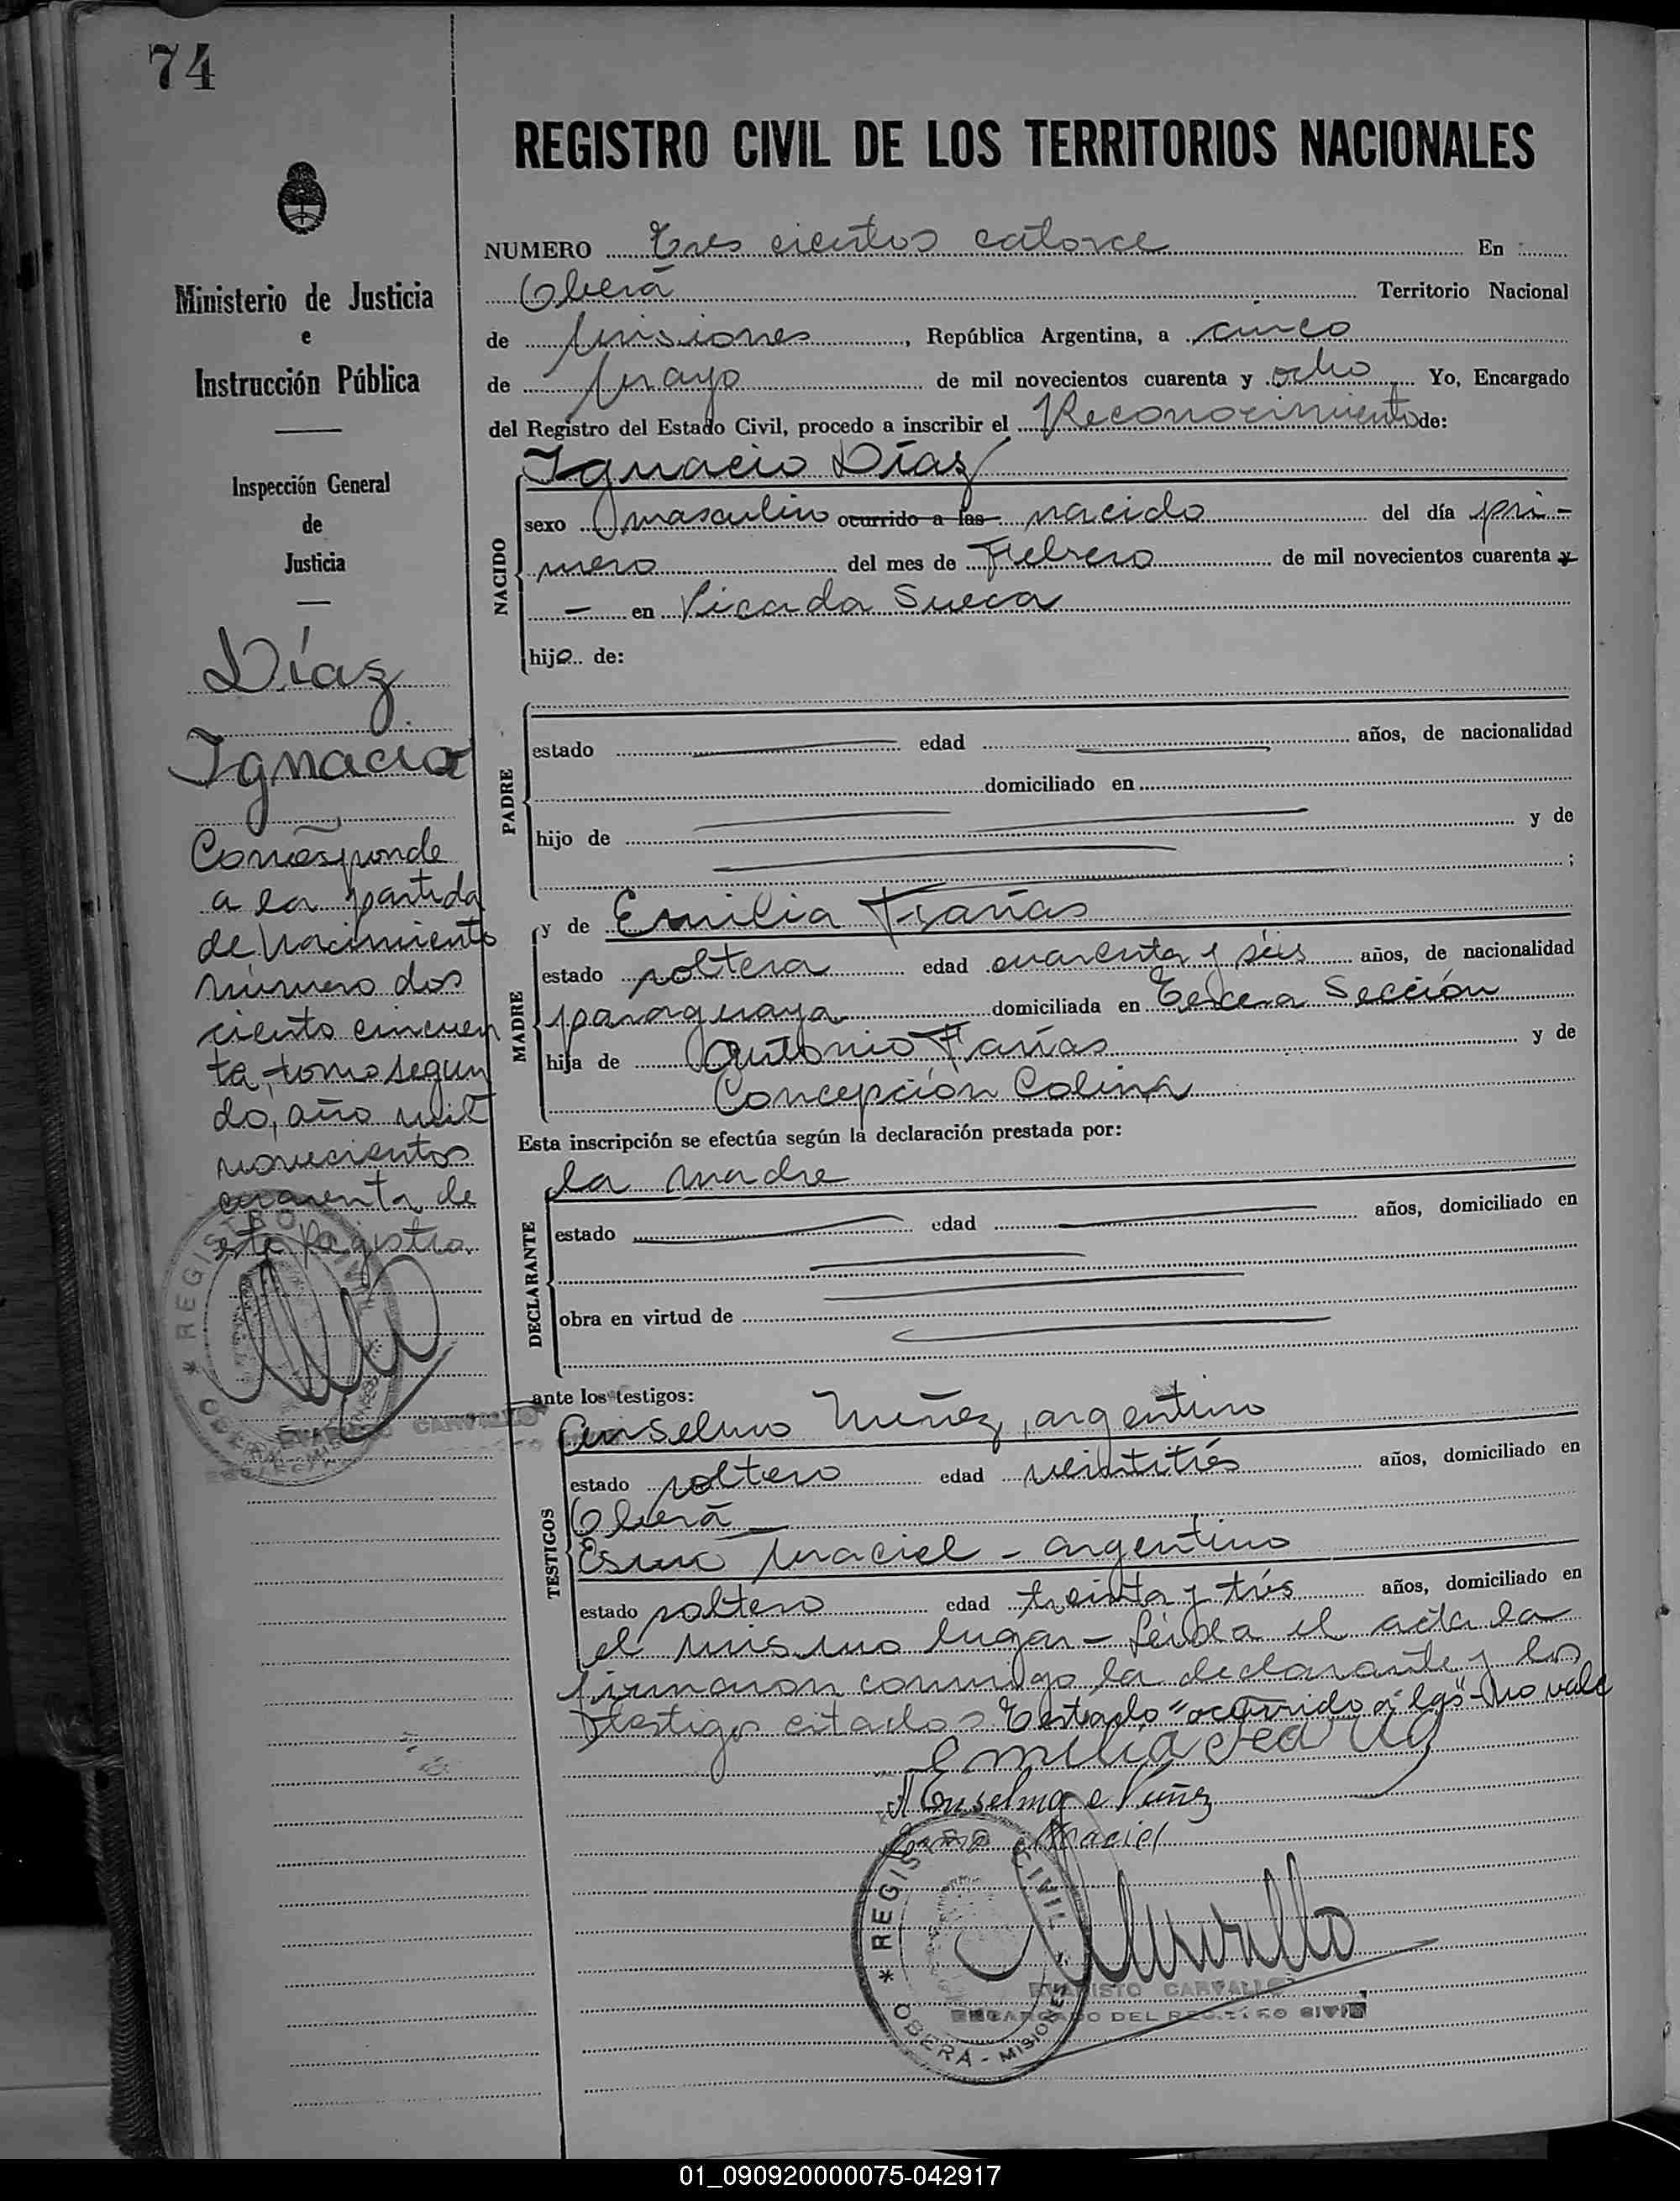 74
REGISTRO CIVIL DE LOS TERRITORIOS NACIONALES
Ministerio de Justicia
e
Instrucción Pública
Inspección General
de
Justicia
Díaz
Ignacio
Corresponde
a la partida
de Nacimiento
número dos
ciento cincuen
ta, tomo segun
do, año mil
novecientos
cuarenta de
este Registro.
NUMERO Tres cientos catorce En
Oberá Territorio Nacional
de Misiones, República Argentina, a cinco
de Mayo de mil novecientos cuarenta y ocho Yo, Encargado
del Registro del Estado Civil, procedo a inscribir el Reconocimiento de:
Ignacio Díaz
NACIDO
sexo masculino ocurrido a las nacido del día pri-
mero del mes de Febrero de mil novecientos cuarenta y
- en Picada Sueca
hijo de:
PADRE
estado edad años, de nacionalidad
domiciliado en
hijo de y de
;
MADRE
y de Emilia Farías
estado soltera edad cuarenta y séis años, de nacionalidad
paraguaya domiciliada en Tercera Sección
hija de Antonio Farías y de
Concepción Colina
Esta inscripción se efectúa según la declaración prestada por:
la madre
DECLARANTE
estado edad años, domiciliado en
obra en virtud de
ante los testigos:
TESTIGOS
Anselmo Núñez, argentino
estado soltero edad veintitrés años, domiciliado en
Oberá
Maciel - argentino
estado soltero edad treinta y trés años, domiciliado en
el mismo lugar - Leída el acta la
firmaron conmigo la declarante y los
testigos citados Testado "ocurrido a las" - No vale
Emilia
Anselmo Núñez
Maciel
* REGISTRO CIVIL *
OBERÁ - MISIONES
EVARISTO CARVALLO
ENCARGADO DEL REGISTRO CIVIL
01_090920000075-042917